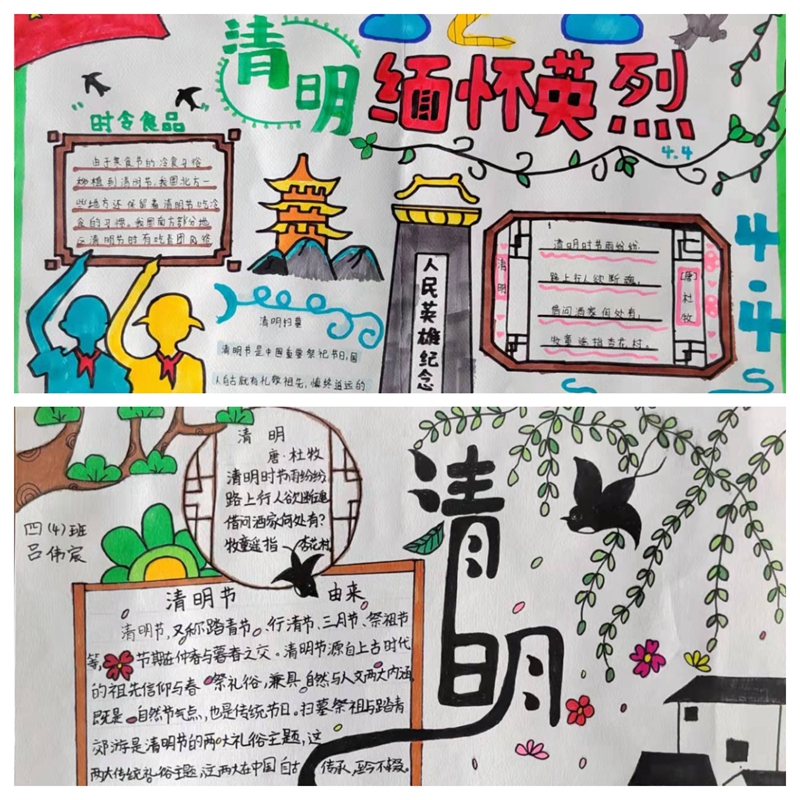 清明
缅怀英烈
4.4
时令食品
由于寒食节的冷食习俗
移植到清明节,我国北方一
些地方还保留着清明节吃冷
食的习惯。我国南方部分地
区清明节时有吃青团风俗
清明扫墓
清明节是中国重要祭祀节日,国
人自古就有礼敬祖先,慎终追远的
人民英雄纪念
清明
清明时节雨纷纷,
路上行人欲断魂。
借问酒家何处有,
牧童遥指杏花村。
[唐]杜牧
4.4
清明
唐·杜牧
清明时节雨纷纷
路上行人欲断魂
借问酒家何处有?
牧童遥指 杏花村
四(4)班
吕伟宸
清明
清明节 由来
清明节,又称踏青节、行清节、三月节、祭祖节
等, 节期在仲春与暮春之交。清明节源自上古时代
的祖先信仰与春 祭礼俗,兼具 自然与人文两大内涵
既是 自然节气点,也是传统节日。扫墓祭祖与踏青
郊游是清明节的两大礼俗主题,这
两大传统礼俗主题, 在中国自古 传承,至今不辍。